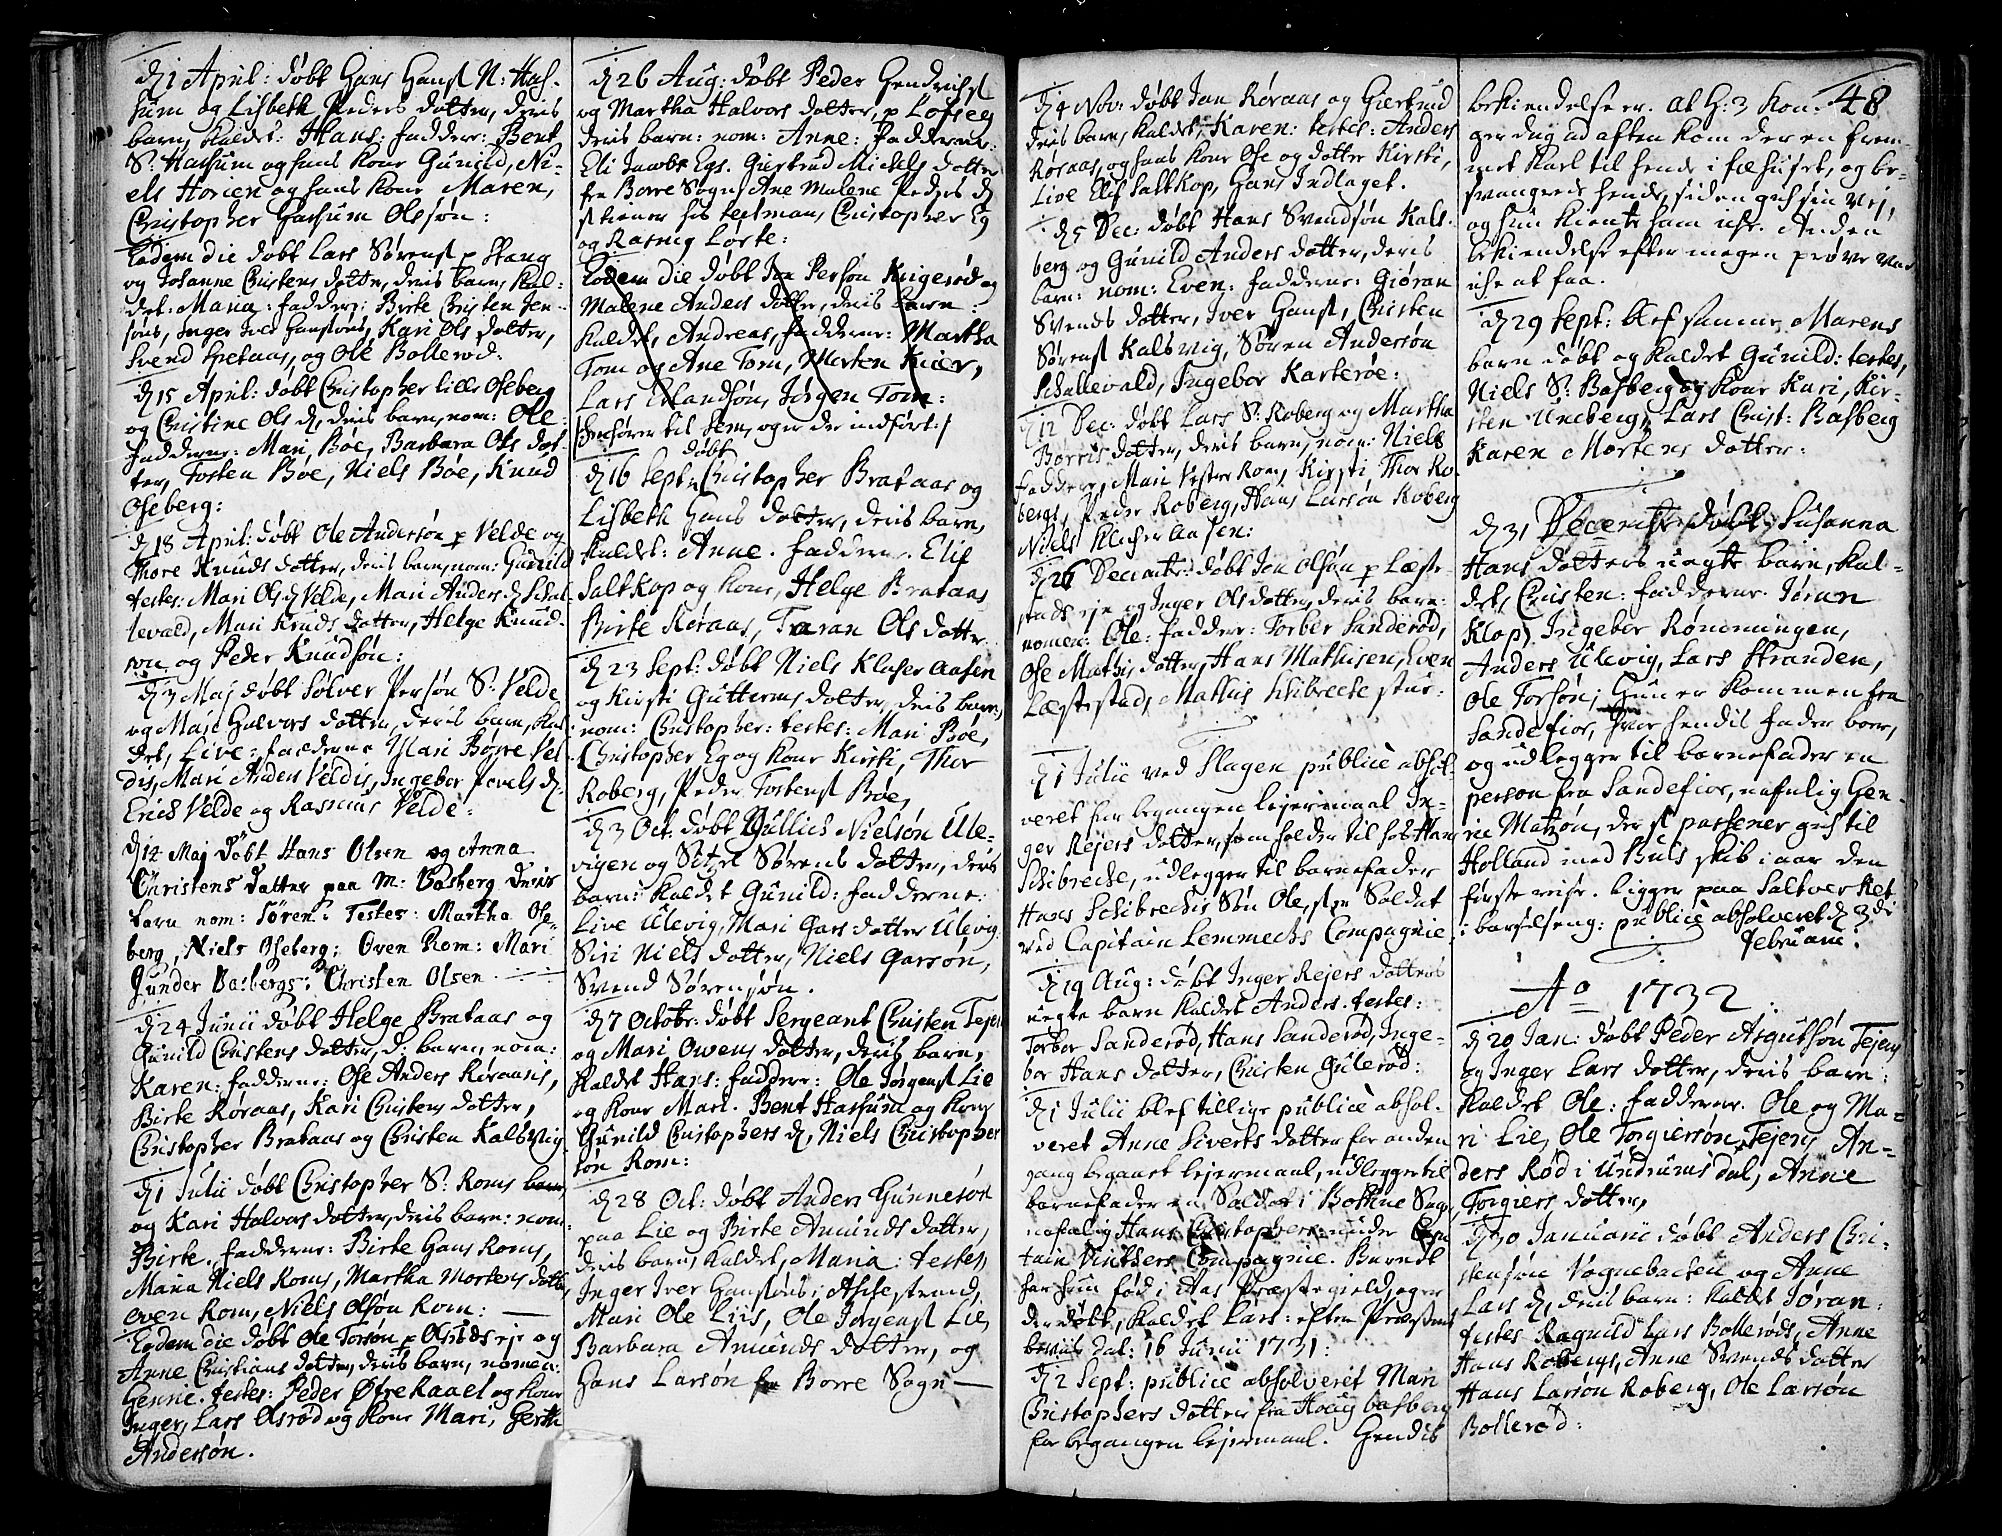 d 1 April: døbt Hans Hans# N: Has-
sum og Lisbeth Peders dotter, deris
barn, kaldet: Hans: faddere: Bent
S: Hassum og hans kone Gunild, Ni-
els Horten og hans kone Maren,
Christopher Hassum Olsøn:
Eodem die døbt Lars Sørens# p Stang
og Johanne Christens dotter, deris barn, kal-
det: Maria: faddere: Birte Christen Jen-
søns, Inger Iver Hansøns, Kari Ols dotter,
Svend Gretaas, og Ole Bollerød:
d 15 April: døbt Christopher lille Oseberg
og Christine Ols d, deris barn, nom: Ole:
fadderne: Mari Bøe, Barbara Ols dot-
ter, Torsten Bøe, Niels Bøe, Knud
Oseberg:
d 18 April: døbt Ole Andersøn p Velde og
Thore Knuds dotter, deris barn, nom: Gunild
testes: Mari Ols d Velde, Mari Anders d Skal-
levald, Mari Knuds dotter, Helge Knud-
søn og Peder Knudsøn:
d 3 Maj døbt Sølver Persøn S: Velde
og Mari Halvors dotter, deris barn, kal-
det, Live: fadderne Mari Børre Vel-
dis, Mari Anders Veldis, Ingebor Povels d.
Erich Velde og Rasmus Velde:
d 14 Maj døbt Hans Olsen og Anna
Christens datter paa M: Basberg Deris
barn nom: Søren: Testes: Martha Ose-
berg, Niels Oseberg: Oven Rom: Mari
Gunder Basbergs: Christen Olsen
d 24 Junii døbt Helge Brataas og
Gunild Christens dotter, d: barn, nom:
Karen: fadderne: Ose Anders Røraas,
Birte Røraas, Kari Christens dotter,
Christopher Brataas og Christen Kalsvig
d 1 Julii døbt Christopher S: Roms barn
og Kari Halvors dotter, deris barn: nom
Birte. fadderne: Birte Hans Roms,
Maria Niels Roms, Martha Mortens dotter
Oven Rom, Niels Olsøn Rom:
Eodem die døbt Ole Torsøn p Olsrøds eje og
Anne Christians dotter, deris barn, nomen:
Genne. testes: Peder Østre Kaael og kone
Inger, Lars Olsrød og kone Mari, Gerth
Andersøn.
d 26 Aug: døbt Peder Hendrichs#
og Martha Halvors dotter, p Lofseg
deris barn: nom: Anne: fadderne:
Eli Jacobs Egs. Giertrud Michels dotter
fra Borre Sogn, Ane Malene Peders d
# tiener hos Testman, Christopher Eg
og Rasmg Løfte:
Eodem die døbt Jon Persøn Krigerød og
Malene Anders dotter, deris barn:
kaldet, Andreas, fadderne: Martha
Tom og Ane Tom, Morten Kiær,
Lars Erlandsøn, Jørgen Tom:
/: henhører til Sem, og er der indført :/
døbt
d 16 Sept: Christopher Brataas og
Lisbeth Hans dotter, deris barn,
kaldet: Anne. faddere. Elif
Saltkop og kone, Helge Brataas
Birte Røraas, Taran Ols dotter
d 23 Sept: døbt Niels Klocher aasen
og Kirsti Guttorms dotter, deris barn,
nom: Christopher: testes: Mari Bøe,
Christopher Eg og kone Kirsti, Thor
Roberg, Peder Torstens# Bøe,
d 3 Oct. døbt Gullich Nielsøn Ule-
vigen og Sitzel Sørens dotter, deris
barn: kaldet Gunild: fadderne:
Live Ulevig, Mari Hars dotter Ulevig
Siri Niels dotter, Niels Harsøn,
Svend Sørensøn.
d 7 Octobr: døbt Sergeant Christen Tejen
og Mari Owens dotter, deris barn,
kaldet Hans: faddere: Ole Jørgens# Lie
og kone Mari. Bent Hassum og kone
Gunild Christophers d, Niels Christopher
søn Rom:
d 28 Oct: døbt Anders Gunnersøn
paa Lie og Birte Amunds dotter,
deris barn, kaldet, Maria: testes,
Inger Iver Hansøns i Aschestrand,
Mari Ole Liis, Ole Jørgens# Lie
Barbara Amunds dotter, og
Hans Larsøn fra Borre Sogn
48
d 4 Nov: døbt Jan Røraas og Giertrud
deris barn, kaldet, Karen: testes: Anders
Røraas, og hans kone Ose og dotter Kirsti,
Live Elef Saltkop, Hans Indlaget.
d 5 Dec: døbt Hans Svendsøn Kals-
berg og Gunild Anders dotter, deris
barn: nom: Even: fadderne: Giøran
Svends dotter, Iver Hans#, Christen
Sørens# Kalsvig, Søren Andersøn
Schallevald, Ingebor Karterøe:
d 12 Dec: døbt Lars S: Roberg og Martha
Børris dotter, deris barn, nom: Niels
faddere, Mari Vestre Rom, Kirsti Thor Ro-
bergs, Peder Roberg, Hans Larsøn Roberg
Niels Klocher aasen:
d 26 Decembr: døbt Jon Olsøn p Læste-
stads eje og Inger Ols dotter, deris barn:
nomen: Ole: faddere: Torber Sanderød,
Ose Mathis dotter, Hans Mathisen, Even
Læstestad, Mathis Schibrecke stue:
d 1 Julii ved Slagen publicè absol-
veret for begangen lejermaal In-
ger Rejers dotter, som holder til hos Hans
Schibrecke, udlegger til barnefader
Hans Schibrechis Søn Ole, som er Soldat
ved Capitain Lemmechs Compagnie
d 19 Aug: døbt Inger Rejers dotters
uegte barn kaldet Anders. testes:
Torbor Sanderød, Hans Sanderød, Inge-
bor Hans dotter, Christen Gulerød:
d 1 Julii blef tillige publicè absol-
veret Anne Siverts dotter for anden
gang begaaet lejermaal, udlegger til
barnefader en Soldat i Bothne Sogn
nafnlig Hans Christophersen under Capi-
tain Vinthers Compagnie. Barnet
har hun fød i Aas Præstegield, og er
der døbt, kaldet Lars: efter Præstens
beviis dat: 16 Junii 1731:
d 2 Sept: publicè absolveret Mari
Christophers dotter fra Houg Basberg
for begangen lejermaal. Hendis
bekiendelse er. at H: 3 Kon-
ger dag ad aften kom der en frem-
met karl til hende i fæhuset, og be-
svangrede hende, siden gich sin vej,
og hun kiente ham iche. Anden
bekiendelse efter megen prøve var
iche at faa.
d 29 Sept: blef samme Marens
barn døbt og kaldet Gunild: testes,
Niels S: Basberg og kone Kari, Kir-
sten Uneberg, Lars Christ: Basberg
Karen Mortens dotter:
d 31 Decembr døbt Susanna
Hans dotters uegte barn, kal-
det, Christen: fadderne. Jøran
Klop, Ingebor Rønningen,
Anders Ulevig, Lars Stranden,
Ole Torsøn; Hun er kommen fra
Sandefior, hvor hendis fader boer,
og udlegger til barnefader en
person fra Sandefior, nafnlig Hen-
ric Matzøn, der # passener gich til
Holland med Buls skib i aar den
første reise. ligger paa Saltverket
i barselseng: publicè absolveret d 3di
Februarii:
Ao 1732
d 20 Jan: døbt Peder Asgutsøn Tejen
og Inger Lars dotter, deris barn:
kaldet Ole: fadderne. Ole og Ma-
ri Lie, Ole Torgiersøn Tejen, An-
ders Rød i Undrumsdal, Anne
Torgiers dotter,
d 30 Januarii døbt Anders Chri-
stensøn Vognebacken og Anne
Lars d, deris barn: kaldet Jøran:
testes Ragnild Lars Bollerøds, Anne
Hans Robergs, Anne Svends dotter
Hans Larsøn Roberg, Ole Larsøn
Bollerød: